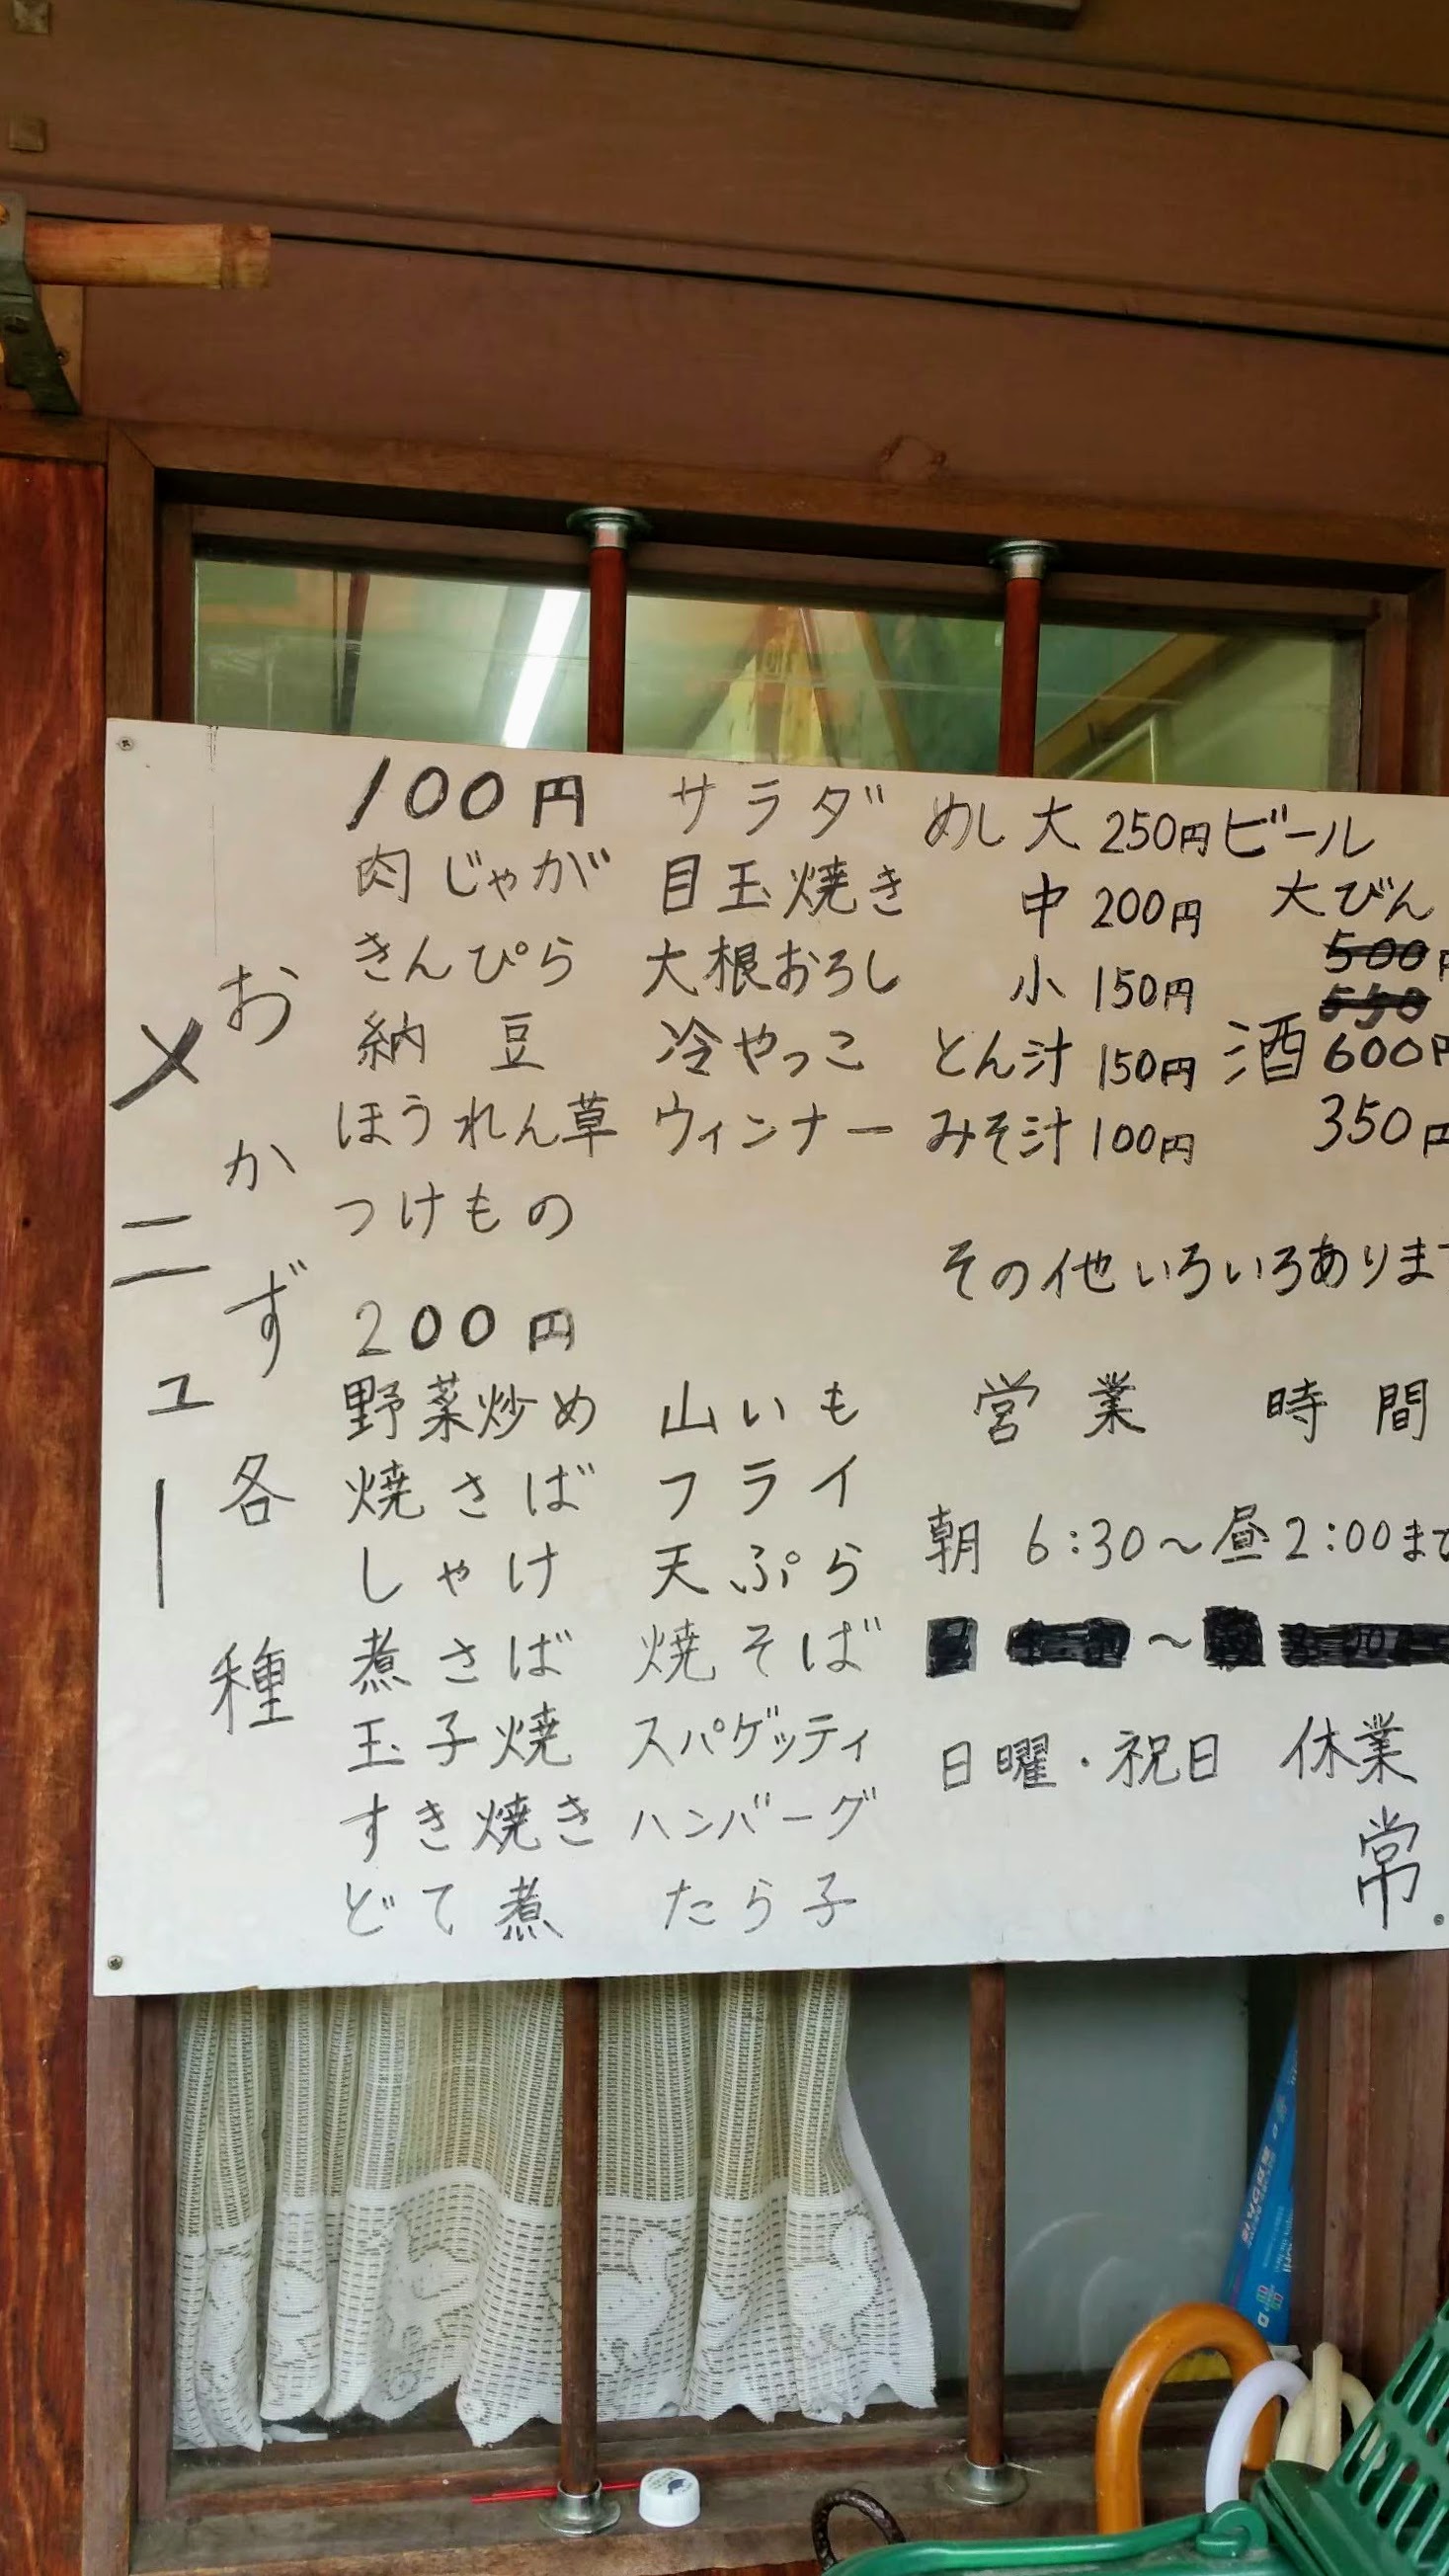 メニュー
おかず各種
100円
肉じゃが
きんぴら
納豆
ほうれん草
つけもの
サラダ
目玉焼き
大根おろし
冷やっこ
ウィンナー
200円
野菜炒め
焼さば
しゃけ
煮さば
玉子焼
すき焼き
どて煮
山いも
フライ
天ぷら
焼そば
スパゲッティ
ハンバーグ
たら子
めし大 250円
中 200円
小 150円
とん汁 150円
みそ汁 100円
ビール
大びん
500円
550
600円
酒
350円
その他いろいろありま
営業時間
朝 6:30〜昼2:00まで
〜
日曜・祝日 休業
常.